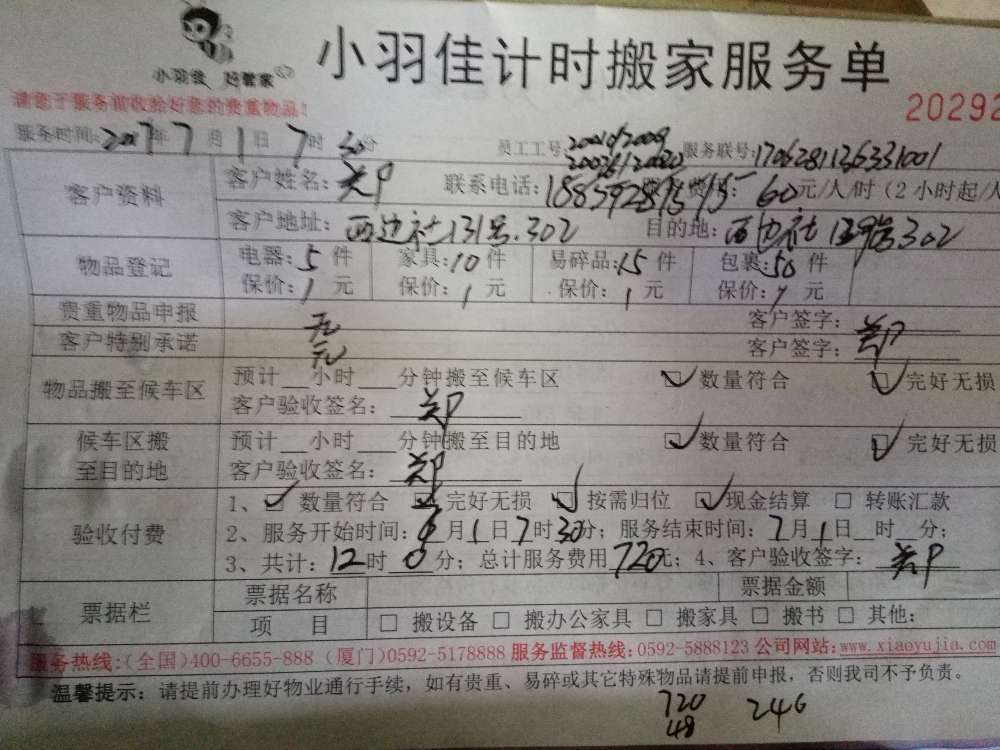 小羽佳 好管家
小羽佳计时搬家服务单
请您于服务前收验好您的贵重物品!
20292
服务时间:2017年7月1日7时30分 员工工号: 服务联号:1706281136331001
客户资料 客户姓名: 联系电话: 60元/人/时(2小时起/人
客户地址:西边社131号.302 目的地:西边社139号302
物品登记 电器:5件 家具:10件 易碎品:15件 包裹:50件
保价:1元 保价:1元 保价:1元 保价:1元
贵重物品申报 无 客户签字:
客户特别承诺 无 客户签字:
物品搬至候车区 预计__小时___分钟搬至候车区 数量符合 完好无损
客户验收签名:
候车区搬至目的地 预计__小时___分钟搬至目的地 数量符合 完好无损
客户验收签名:
验收付费 1、数量符合 完好无损 按需归位 现金结算 □ 转账汇款
2、服务开始时间: 月1日7时30分;服务结束时间:7月1日__时__分;
3、共计:12时0分;总计服务费用720元;4、客户验收签字:
票据栏 票据名称 票据金额
项 目 □ 搬设备 □ 搬办公家具 □ 搬家具 □ 搬书 □ 其他:
服务热线:(全国)400-6655-888 (厦门)0592-5178888 服务监督热线:0592-5888123 公司网站:www.xiaoyujia.com
温馨提示:请提前办理好物业通行手续,如有贵重、易碎或其它特殊物品请提前申报,否则我司不予负责。
720 246
48